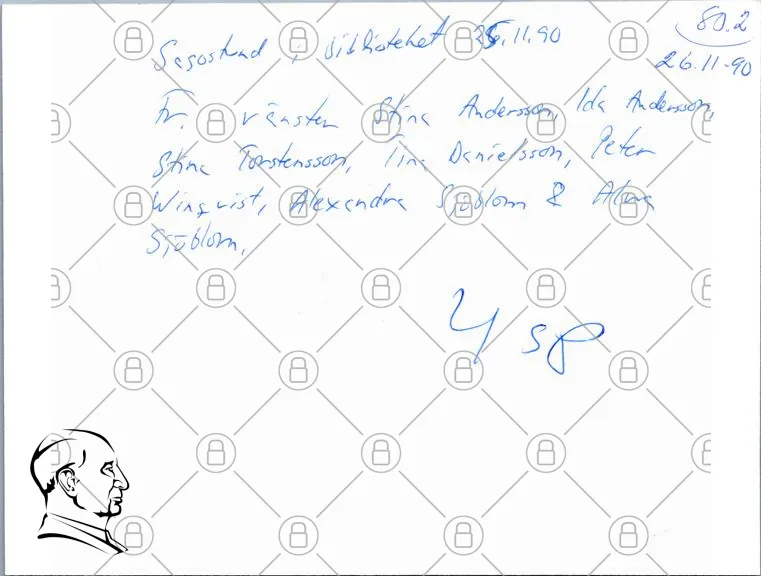 80.2
Sagostund i biblioteket 26.11.90
26.11-90
Fr. vänster Stina Andersson, Ida Andersson,
Stina Torstensson, Tina Danielsson, Peter
Winqvist, Alexandra Sjöblom & Alma
Sjöblom.
4 sp